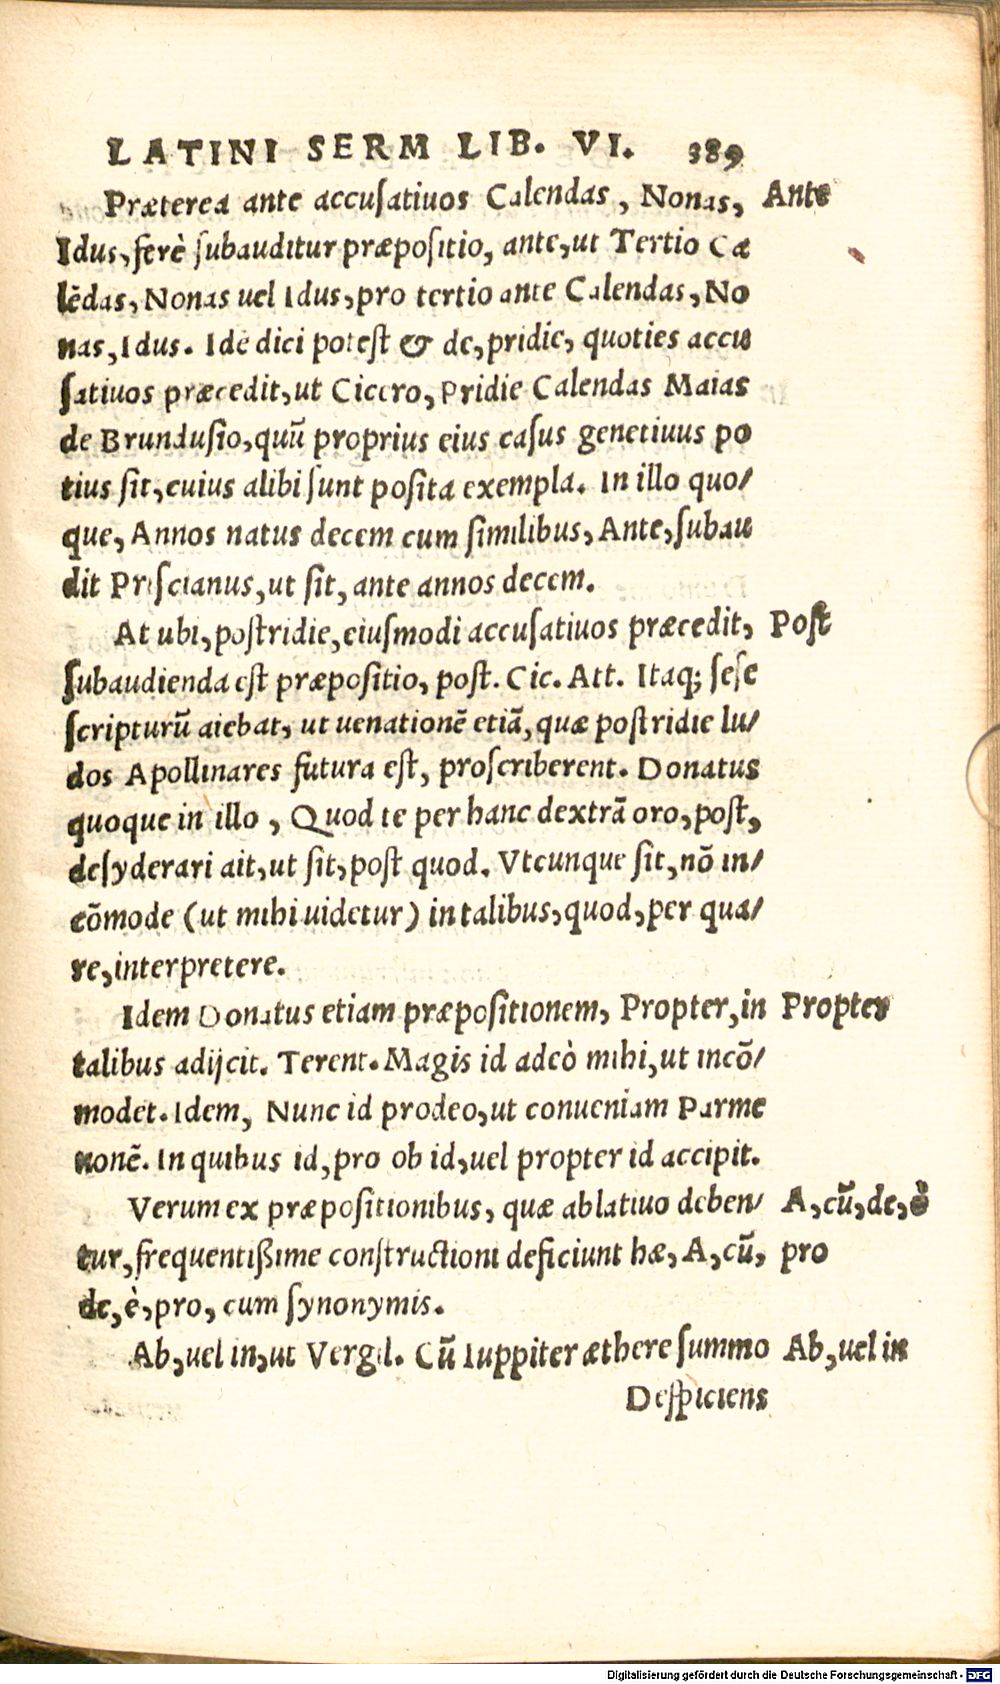 LATINI SERM LIB. VI. 389
Præterea ante accusatiuos Calendas, Nonas, Ante
Idus, ferè subauditur præpositio, ante, ut Tertio Ca
lẽdas, Nonas uel Idus, pro tertio ante Calendas, No
nas, Idus. Ide dici potest & de, pridie, quoties accu
satiuos præcedit, ut Cicero, Pridie Calendas Maias
de Brundusio, quũ proprius eius casus genetiuus po
tius sit, cuius alibi sunt posita exempla. In illo quo/
que, Annos natus decem cum similibus, Ante, subau
dit Priscianus, ut sit, ante annos decem.
At ubi, postridie, eiusmodi accusatiuos præcedit, Post
subaudienda est præpositio, post. Cic. Att. Itaq; sese
scripturũ aiebat, ut uenationẽ etiã, quæ postridie lu/
dos Apollinares futura est, proscriberent. Donatus
quoque in illo, Quod te per hanc dextrã oro, post,
desyderari ait, ut sit, post quod. Vtcunque sit, nõ in/
cõmode (ut mihi uidetur) in talibus, quod, per qua/
re, interpretere.
Idem Donatus etiam præpositionem, Propter, in Propter
talibus adijcit. Terent. Magis id adeò mihi, ut incõ/
modet. Idem, Nunc id prodeo, ut conueniam Parme
nonẽ. In quibus id, pro ob id, uel propter id accipit.
Verum ex præpositionibus, quæ ablatiuo deben/ A, cũ, de, è
tur, frequentißime constructioni deficiunt hæ, A, cũ, pro
de, è, pro, cum synonymis.
Ab, uel in, ut Vergil. Cũ Iuppiter æthere summo Ab, uel in
Despiciens
Digitalisierung gefördert durch die Deutsche Forschungsgemeinschaft - DFG